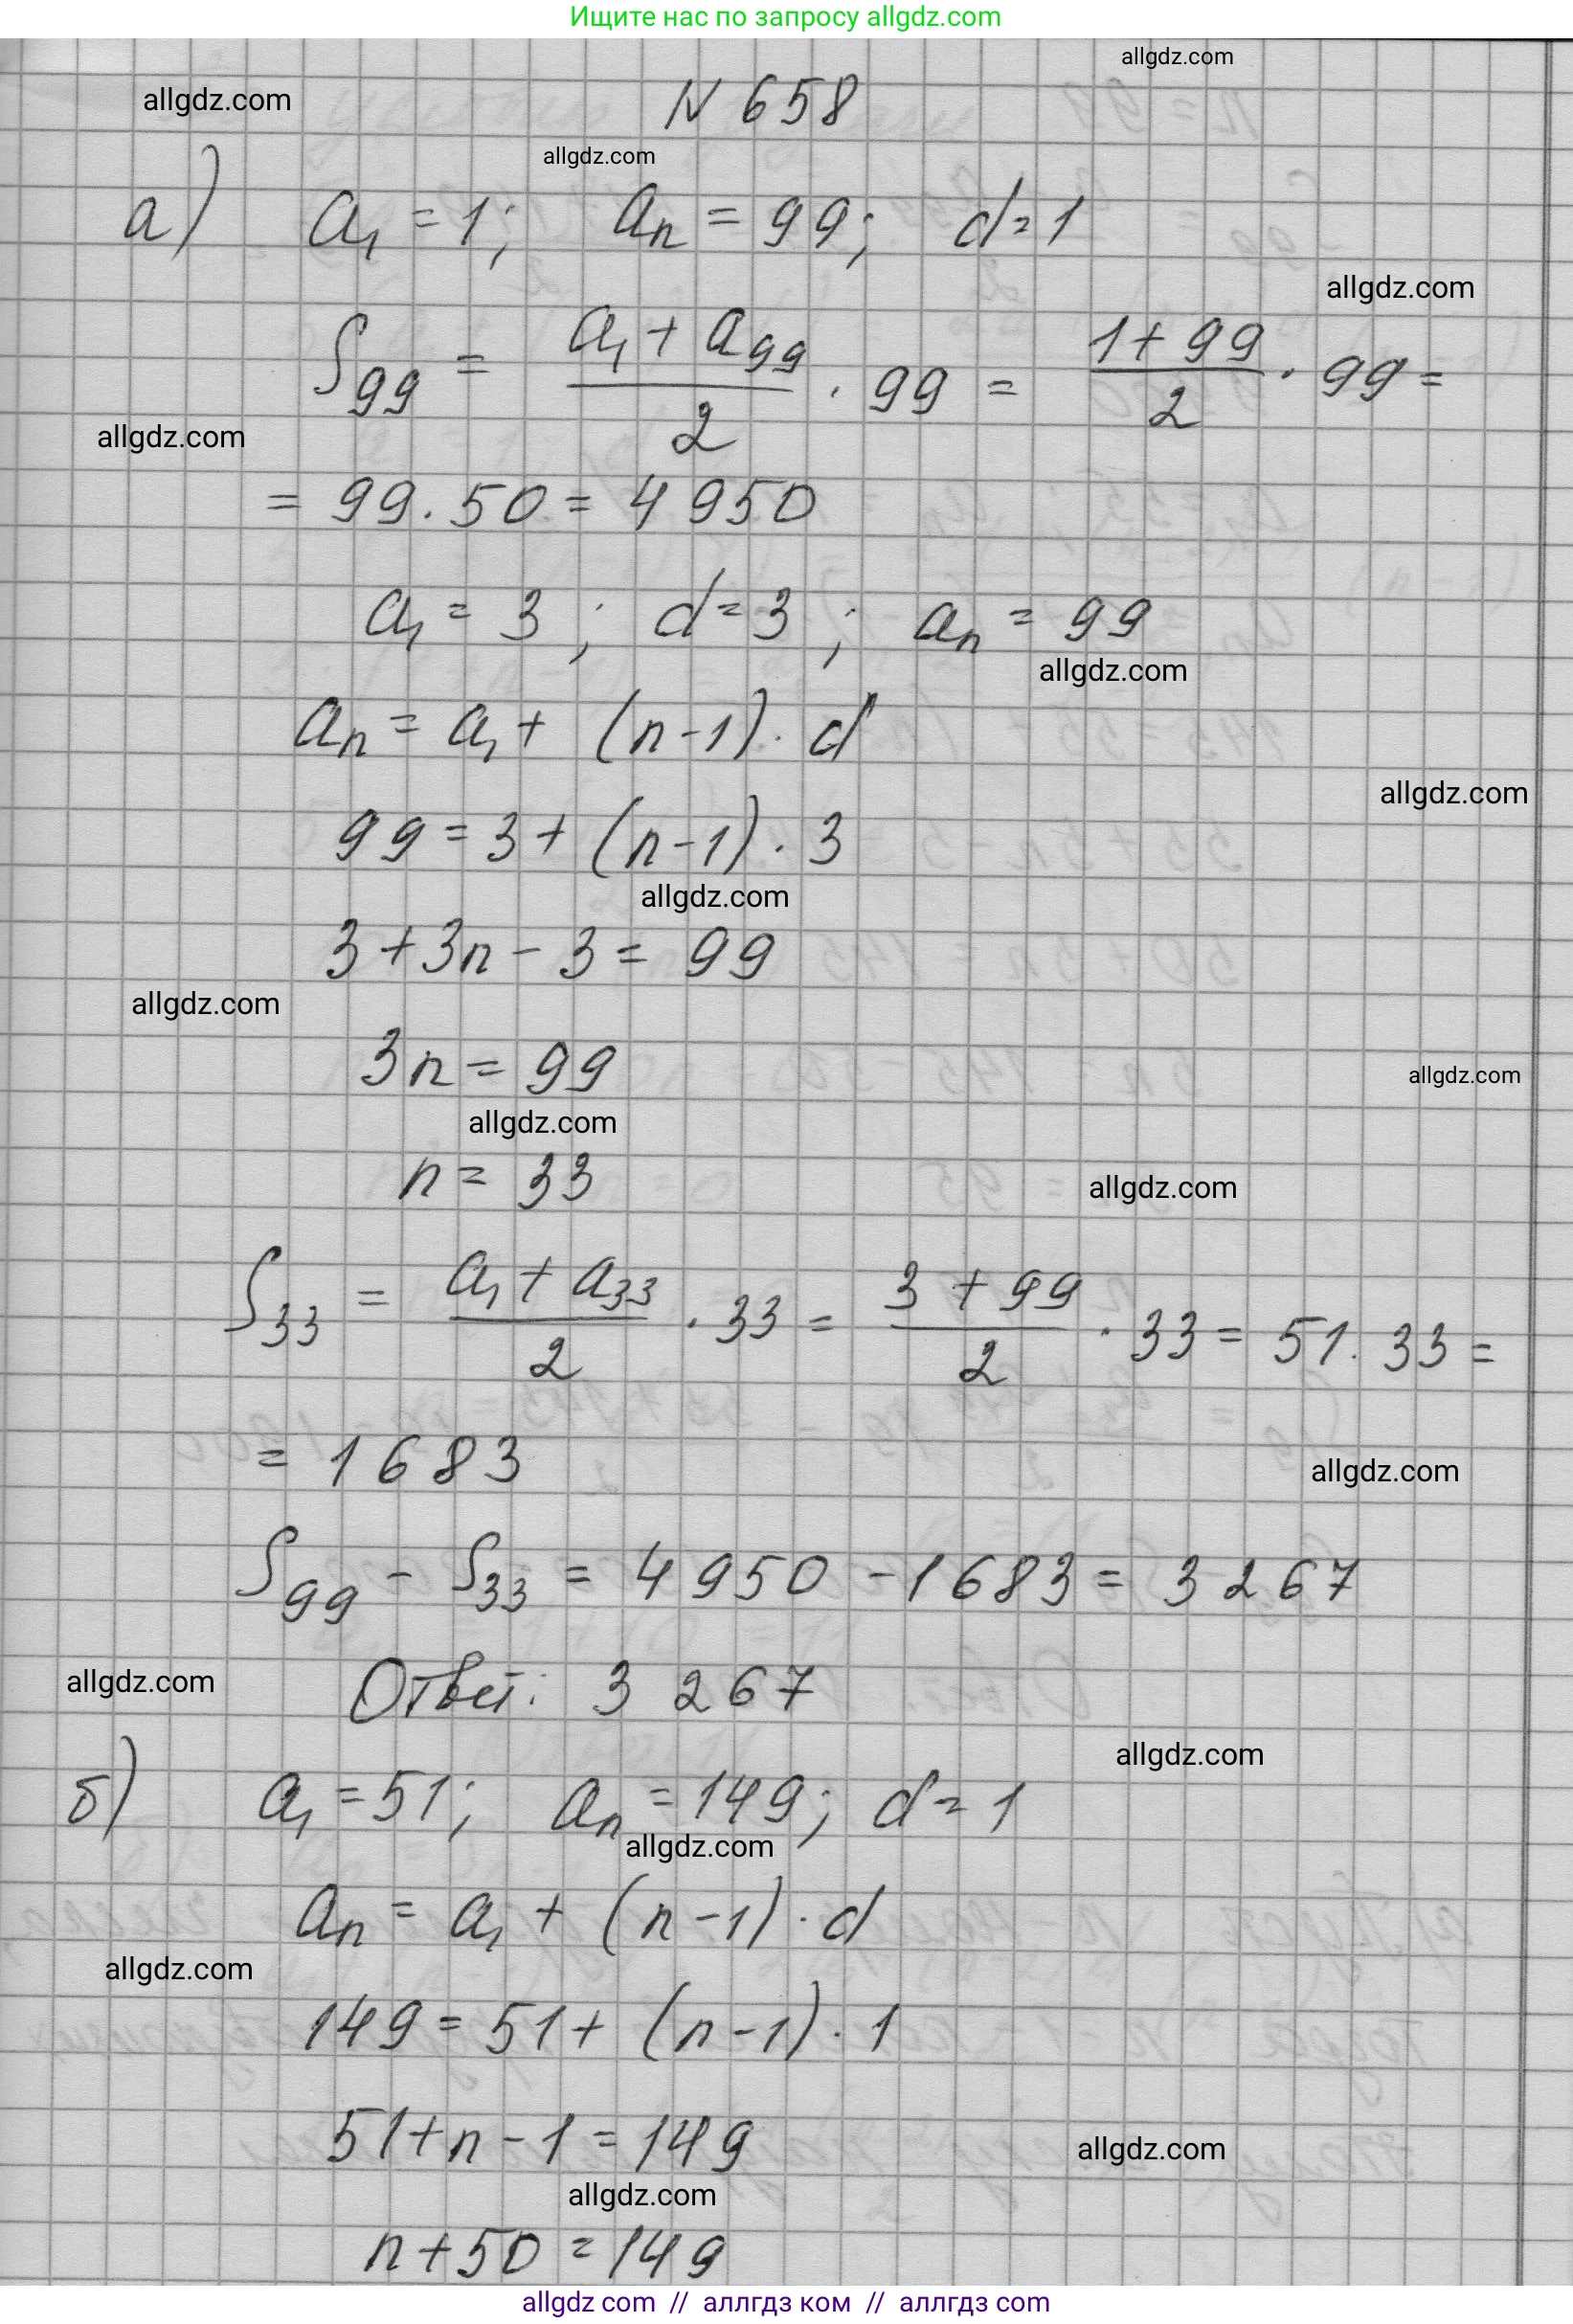 Ищите нас по запросу allgdz.com
allgdz.com
allgdz.com
N 658
allgdz.com
а) a₁ = 1; aₙ = 99; d = 1
allgdz.com
S₉₉ = (a₁ + a₉₉)/2 · 99 = (1 + 99)/2 · 99 =
allgdz.com
= 99 · 50 = 4 950
a₁ = 3; d = 3; aₙ = 99
allgdz.com
aₙ = a₁ + (n - 1) · d
allgdz.com
99 = 3 + (n - 1) · 3
allgdz.com
3 + 3n - 3 = 99
allgdz.com
3n = 99
allgdz.com
allgdz.com
n = 33
allgdz.com
S₃₃ = (a₁ + a₃₃)/2 · 33 = (3 + 99)/2 · 33 = 51 · 33 =
= 1 683
allgdz.com
S₉₉ - S₃₃ = 4 950 - 1 683 = 3 267
allgdz.com
Ответ: 3 267
allgdz.com
б) a₁ = 51; aₙ = 149; d = 1
allgdz.com
aₙ = a₁ + (n - 1) · d
allgdz.com
149 = 51 + (n - 1) · 1
51 + n - 1 = 149
allgdz.com
allgdz.com
n + 50 = 149
allgdz com // аллгдз ком // аллгдз com